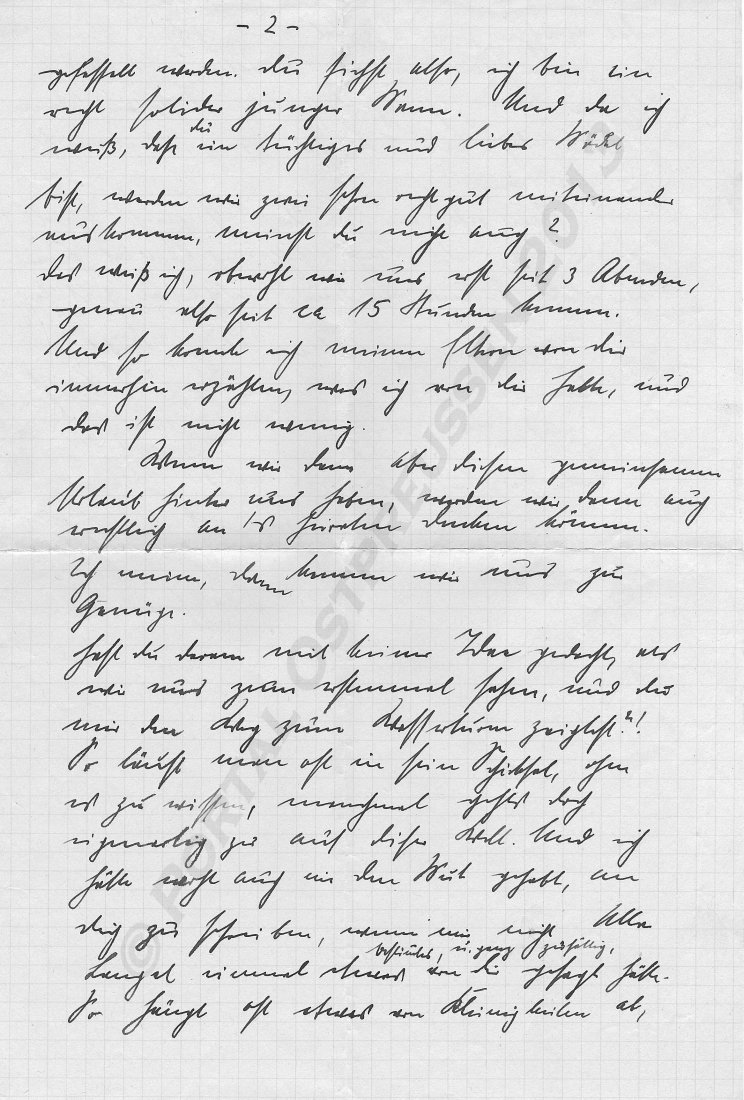 - 2 -
gefesselt werden. Du siehst also, ich bin ein
recht solider junger Mann. Und da ich
weiß, daß du ein tüchtiges und liebes Mädel
bist, werden wir zwei schon recht gut miteinander
auskommen, meinst du nicht auch?
Das weiß ich, obwohl wir uns erst seit 3 Abenden,
genau also seit ca 15 Stunden kennen.
Und so konnte ich meinen Eltern von dir
immerhin erzählen, was ich von dir halte, und
das ist nicht wenig.
Wenn wir dann aber diesen gemeinsamen
Urlaub hinter uns haben, werden wir dann auch
ernstlich an's Heiraten denken können.
Ich meine, dann kennen wir uns zur
Genüge.
Hast du daran mit keiner Idee gedacht, als
wir uns zum erstenmal sahen, und du
mir den Weg zum Wasserturm zeigtest?!
So läuft man oft in sein Schicksal, ohne
es zu wissen, manchmal geht's doch
eigenartig zu auf dieser Welt. Und ich
hätte nicht auch nie den Mut gehabt, an
dich zu schreiben, wenn mir nicht Ulla
bestimmtes, u. ganz zufällig,
Langel einmal etwas von dir gesagt hätte.
So hängt oft etwas von Kleinigkeiten ab,
© PORTAL OSTPREUSSEN 2013